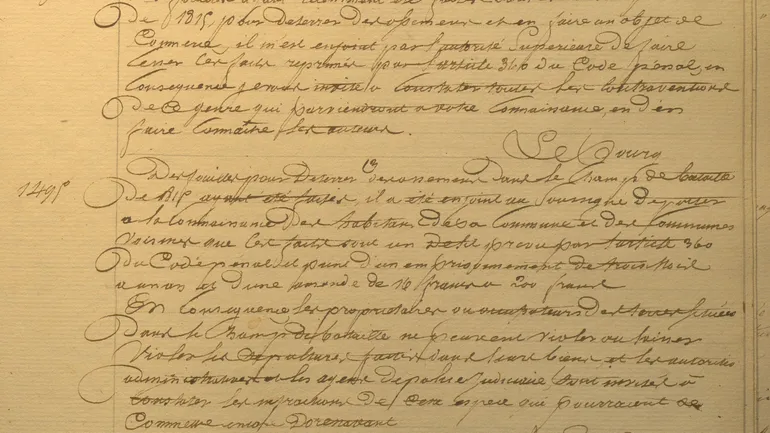 De 1815, pour Deterrer des ossemens et en faire un objet de
Commerce, il m'est enjoint par l'autorité Superieure de faire
Cesser Ces faits reprimés par l'article 360 du Code penal, en
Consequence je vous invite a Constater toutes les Contraventions
De Ce genre qui parviendront a votre Connaissance, et d'en
faire Connaitre les auteurs.
Le Bourg
1495 Des fouilles pour Deterrer des ossemens Dans le Champs de bataille
De 1815 ayant été faites, il a été enjoint au Soussigné De porter
a la Connaissance Des habitans De Sa Commune et des Communes
Voisines que Ces faits sont un Delit prevu par l'article 360
Du Code penal et puni d'un emprisonnement de trois Mois
a un an et d'une amende de 16 francs a 200 francs
En Consequence les proprietaires ou occupateurs Des terres Situées
Dans le Champs de bataille ne peuvent Violer ou laisser
Violer les Sepultures faites dans leurs biens, et les autorités
administratives et les agens De police judiciaire Sont invités à
Constater les infractions De cette espece qui pourraient Se
Commettre Dorenavant